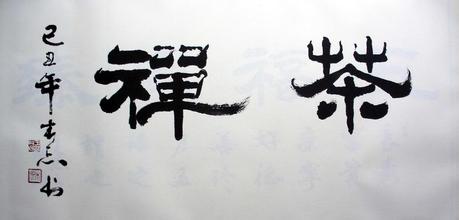 茶禪
己丑年书